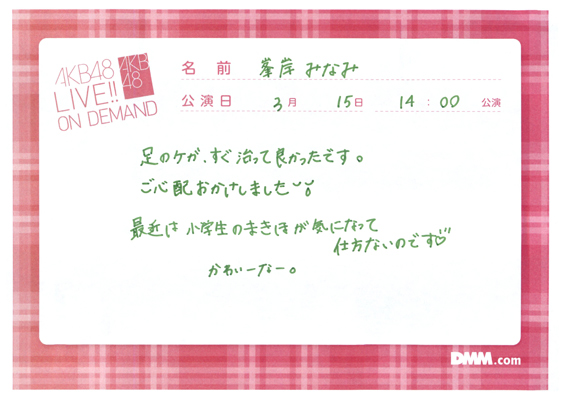 AKB48
LIVE!!
ON DEMAND
AKB
48
名前 峯岸 みなみ
公演日 3月 15日 14:00 公演
足のケガ、すぐ治って良かったです。
ご心配おかけしました
最近は小学生のまきほが気になって
仕方ないのです♡
かわいーなー。
DMM.com